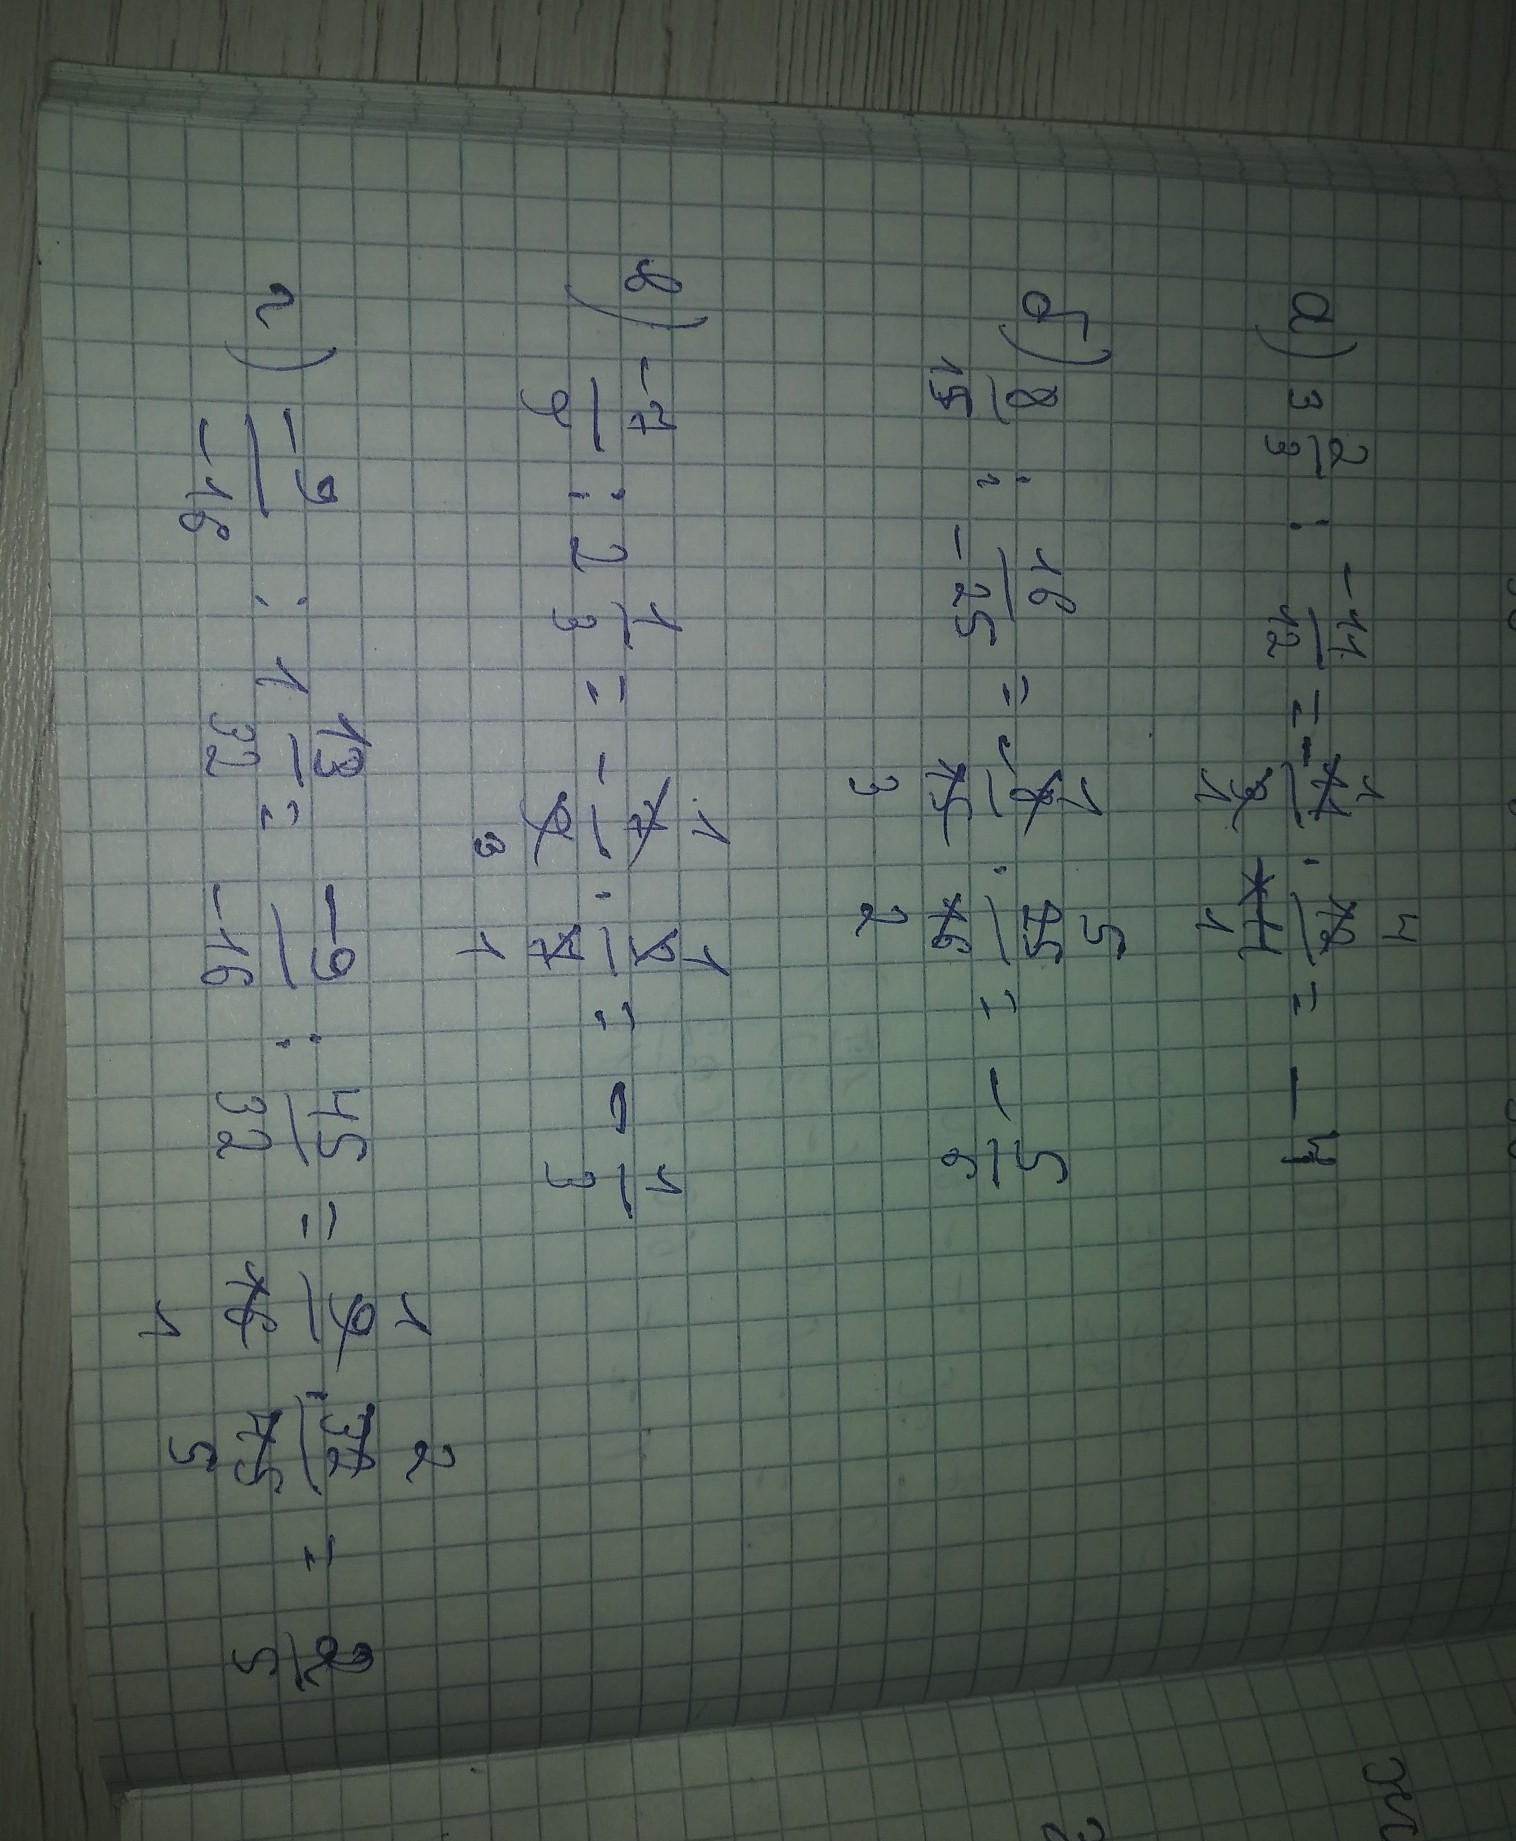 а) 3 2/3 : -11/12 = - 11/3 · 12/11 = - 4
1 4
1 1
б) 8/15 : 16/-25 = - 8/15 · 25/16 = - 5/6
1 5
3 2
в) -7/9 : 2 1/3 = - 7/9 · 3/7 = - 1/3
1 1
3 1
г) -9/-16 : 1 13/32 = -9/-16 : 45/32 = 9/16 · 32/45 = 2/5
1 2
1 5